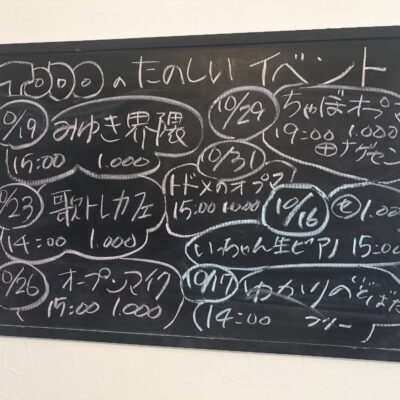 のたのしいイベント
10/19 みゆき界隈
15:00 1.000
10/23 歌トレカフェ
14:00 1.000
10/26 オープンマイク
15:00 1.000
10/29 ちゃぼオプマ
19:00 1.000
田ナゲセン
10/31
トドメのオプマ
15:00 1.000
10/16 1.00
いっちゃん生ピアノ 15:00
10/17 ゆかりの
14:00 フリー